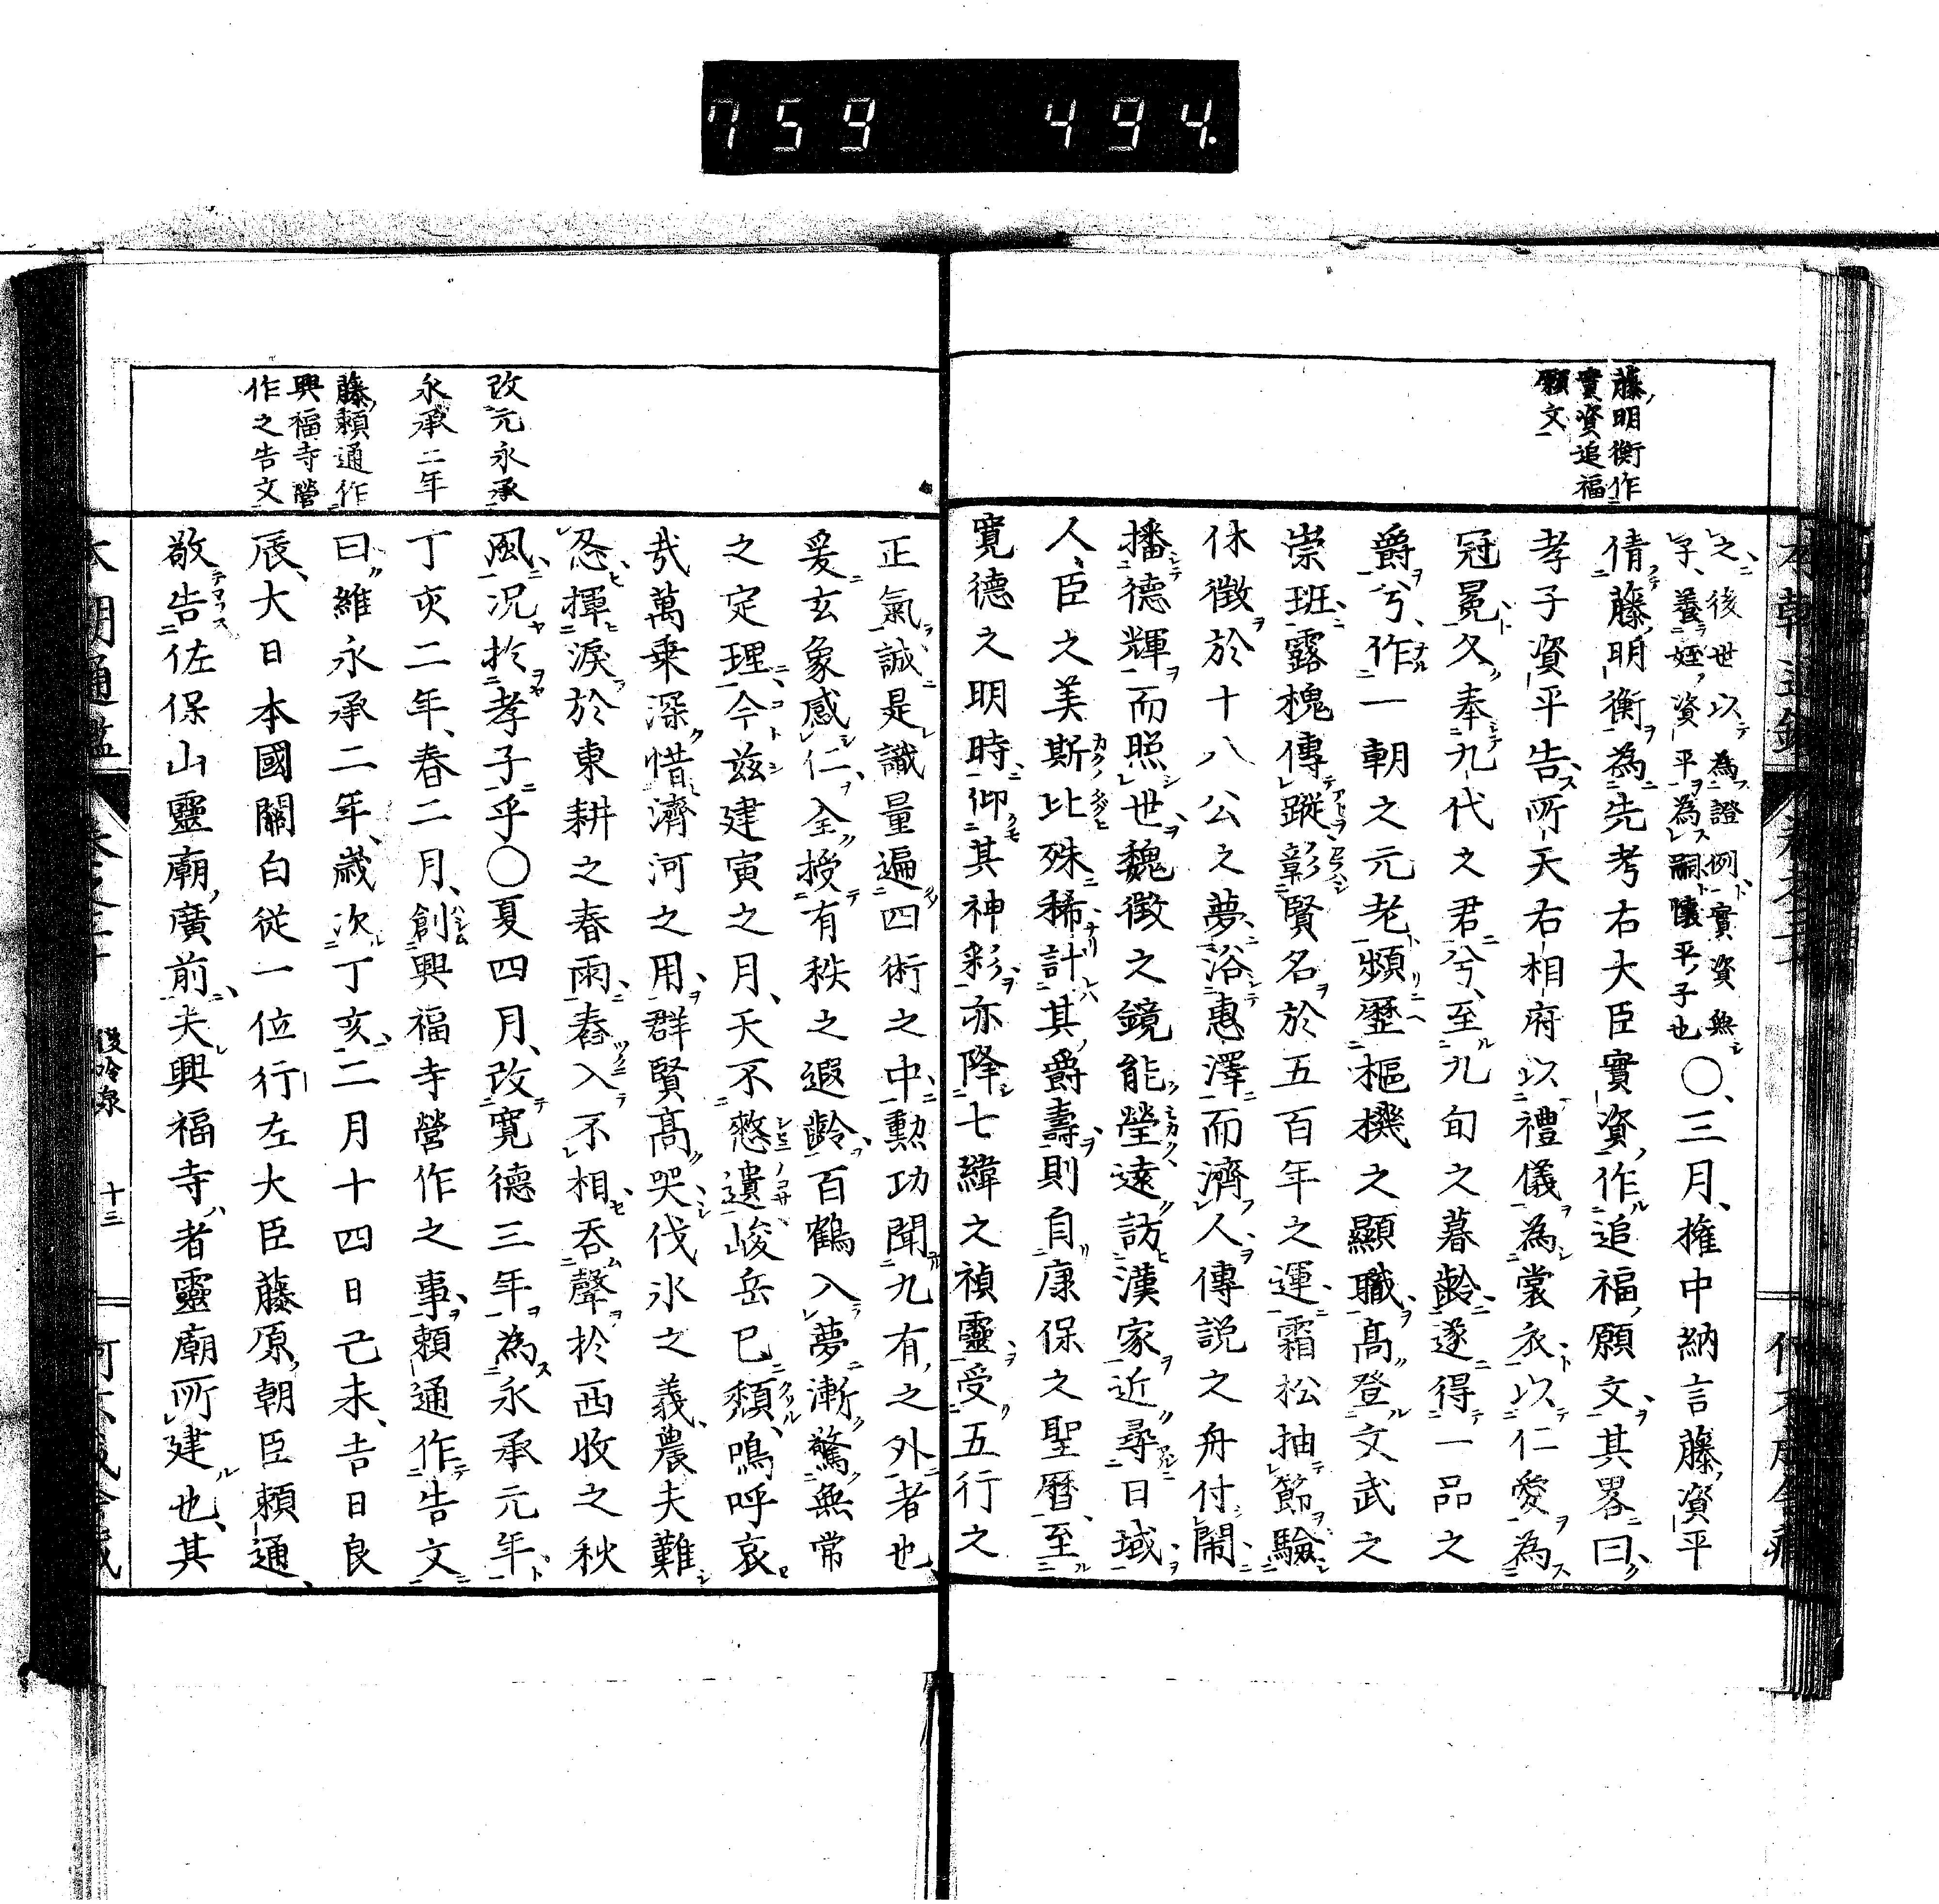 759 494.
藤明衡作
實資追福
願文
之後世以為證例實資無
子養姪資平為嗣懷平子也
〇三月權中納言藤資平
倩藤明衡為先考右大臣實資作追福願文其畧曰
孝子資平告所天右相府以禮儀為裳衣以仁愛為
冠冕久奉九代之君兮至九旬之暮齡遂得一品之
爵兮作一朝之元老頻歷樞機之顯職高登文武之
崇班露槐傳蹤彰賢名於五百年之運霜松抽節驗
休徵於十八公之夢浴惠澤而濟人傳説之舟付閙
播德輝而照世魏徵之鏡能瑩遠訪漢家近尋日域
人臣之美斯比殊稀計其爵壽則自康保之聖曆至
寛德之明時仰其神彩亦降七緯之禎靈受五行之
改元永承
永承二年
藤頼通作
興福寺營
作之告文
正氣誠是識量遍四術之中勲功聞九有之外者也
爰玄象感仁全授有秩之遐齡百鶴入夢漸驚無常
之定理今茲建寅之月天不憖遺峻岳已頽嗚呼哀
哉萬乗深惜濟河之用群賢髙哭伐氷之義農夫難
忍揮淚於東耕之春雨舂入不相吞聲於西收之秋
風況於孝子乎〇夏四月改寛德三年為永承元年
丁亥二年春二月創興福寺營作之事頼通作告文
曰維永承二年歲次丁亥二月十四日己未吉日良
辰大日本國關白從一位行左大臣藤原朝臣頼通
敬告佐保山靈廟廣前夫興福寺者靈廟所建也其
本朝通鑑
後冷泉
十三